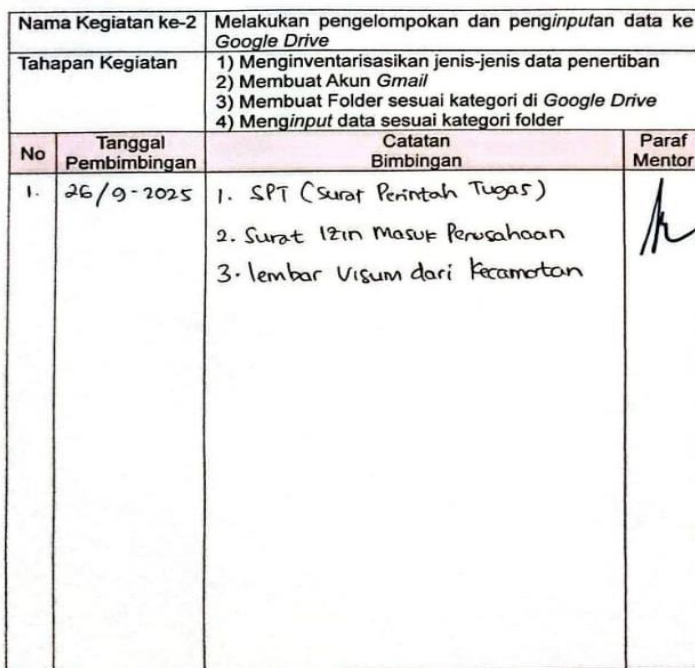 Nama Kegiatan ke-2 Melakukan pengelompokan dan penginputan data ke
Google Drive
Tahapan Kegiatan 1) Menginventarisasikan jenis-jenis data penertiban
2) Membuat Akun Gmail
3) Membuat Folder sesuai kategori di Google Drive
4) Menginput data sesuai kategori folder
No Tanggal Pembimbingan Catatan Bimbingan Paraf Mentor
1. 26/9-2025 1. SPT (Surat Perintah Tugas)
2. Surat Izin Masuk Perusahaan
3. lembar Visum dari Kecamatan